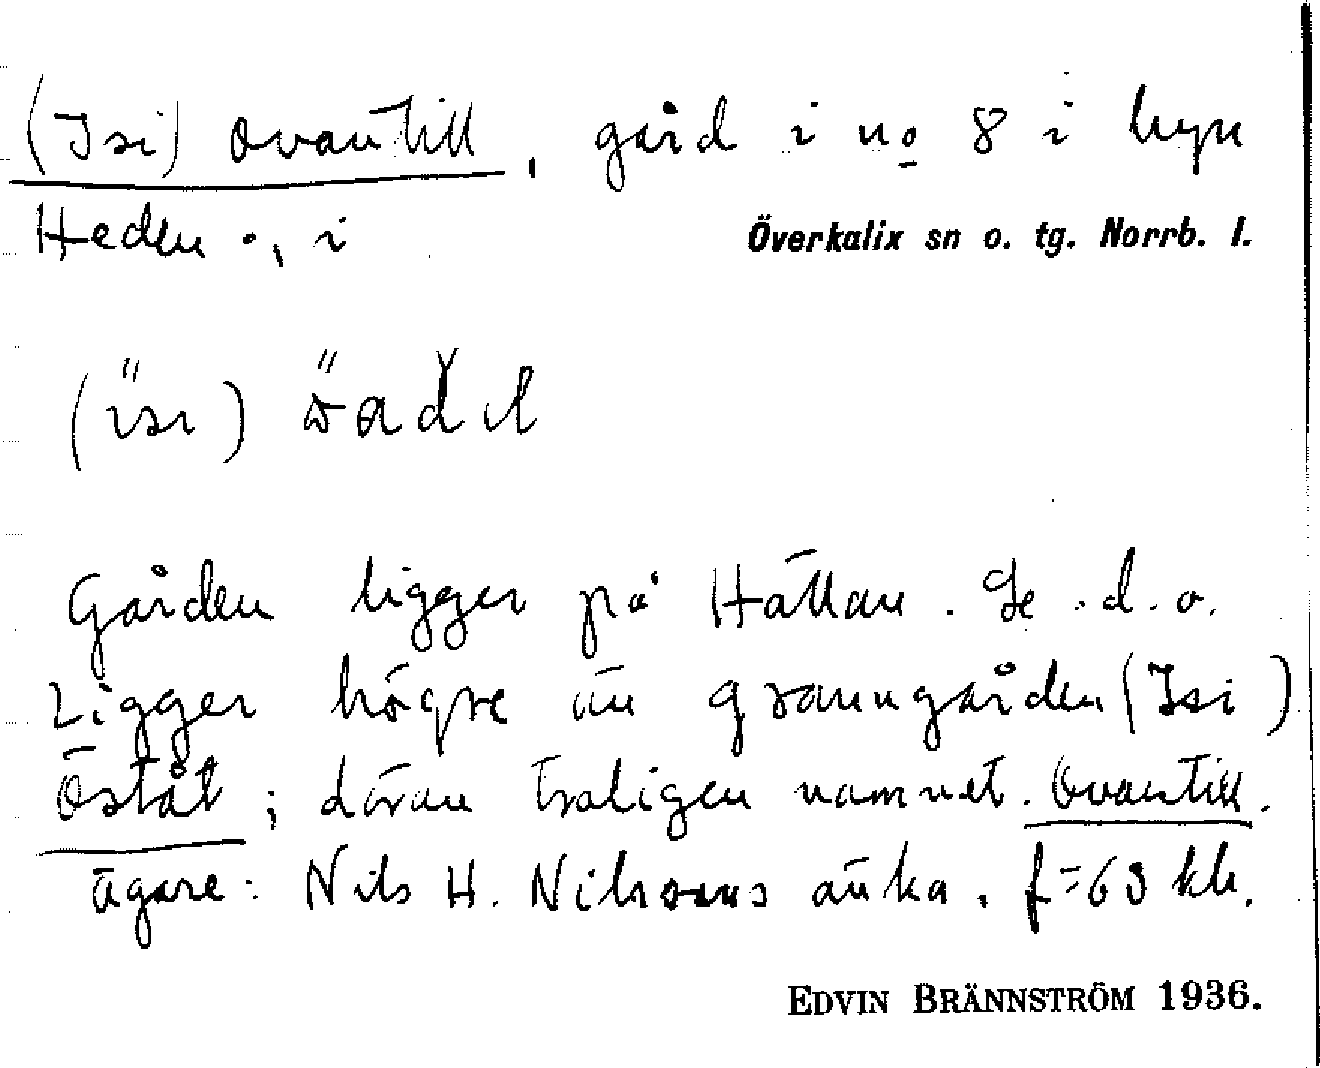 (Isi) ovantill, gård i no 8 i byn
Heden ., i Överkalix sn o. tg. Norrb. l.
Gården ligger på Hällan. Se d. o.
Ligger högre än granngården (Isi)
Öståt; därav troligen namnet Ovantill.
ägare: Nils H. Nilssons änka. f=63 kh.
EDVIN BRÄNNSTRÖM 1936.